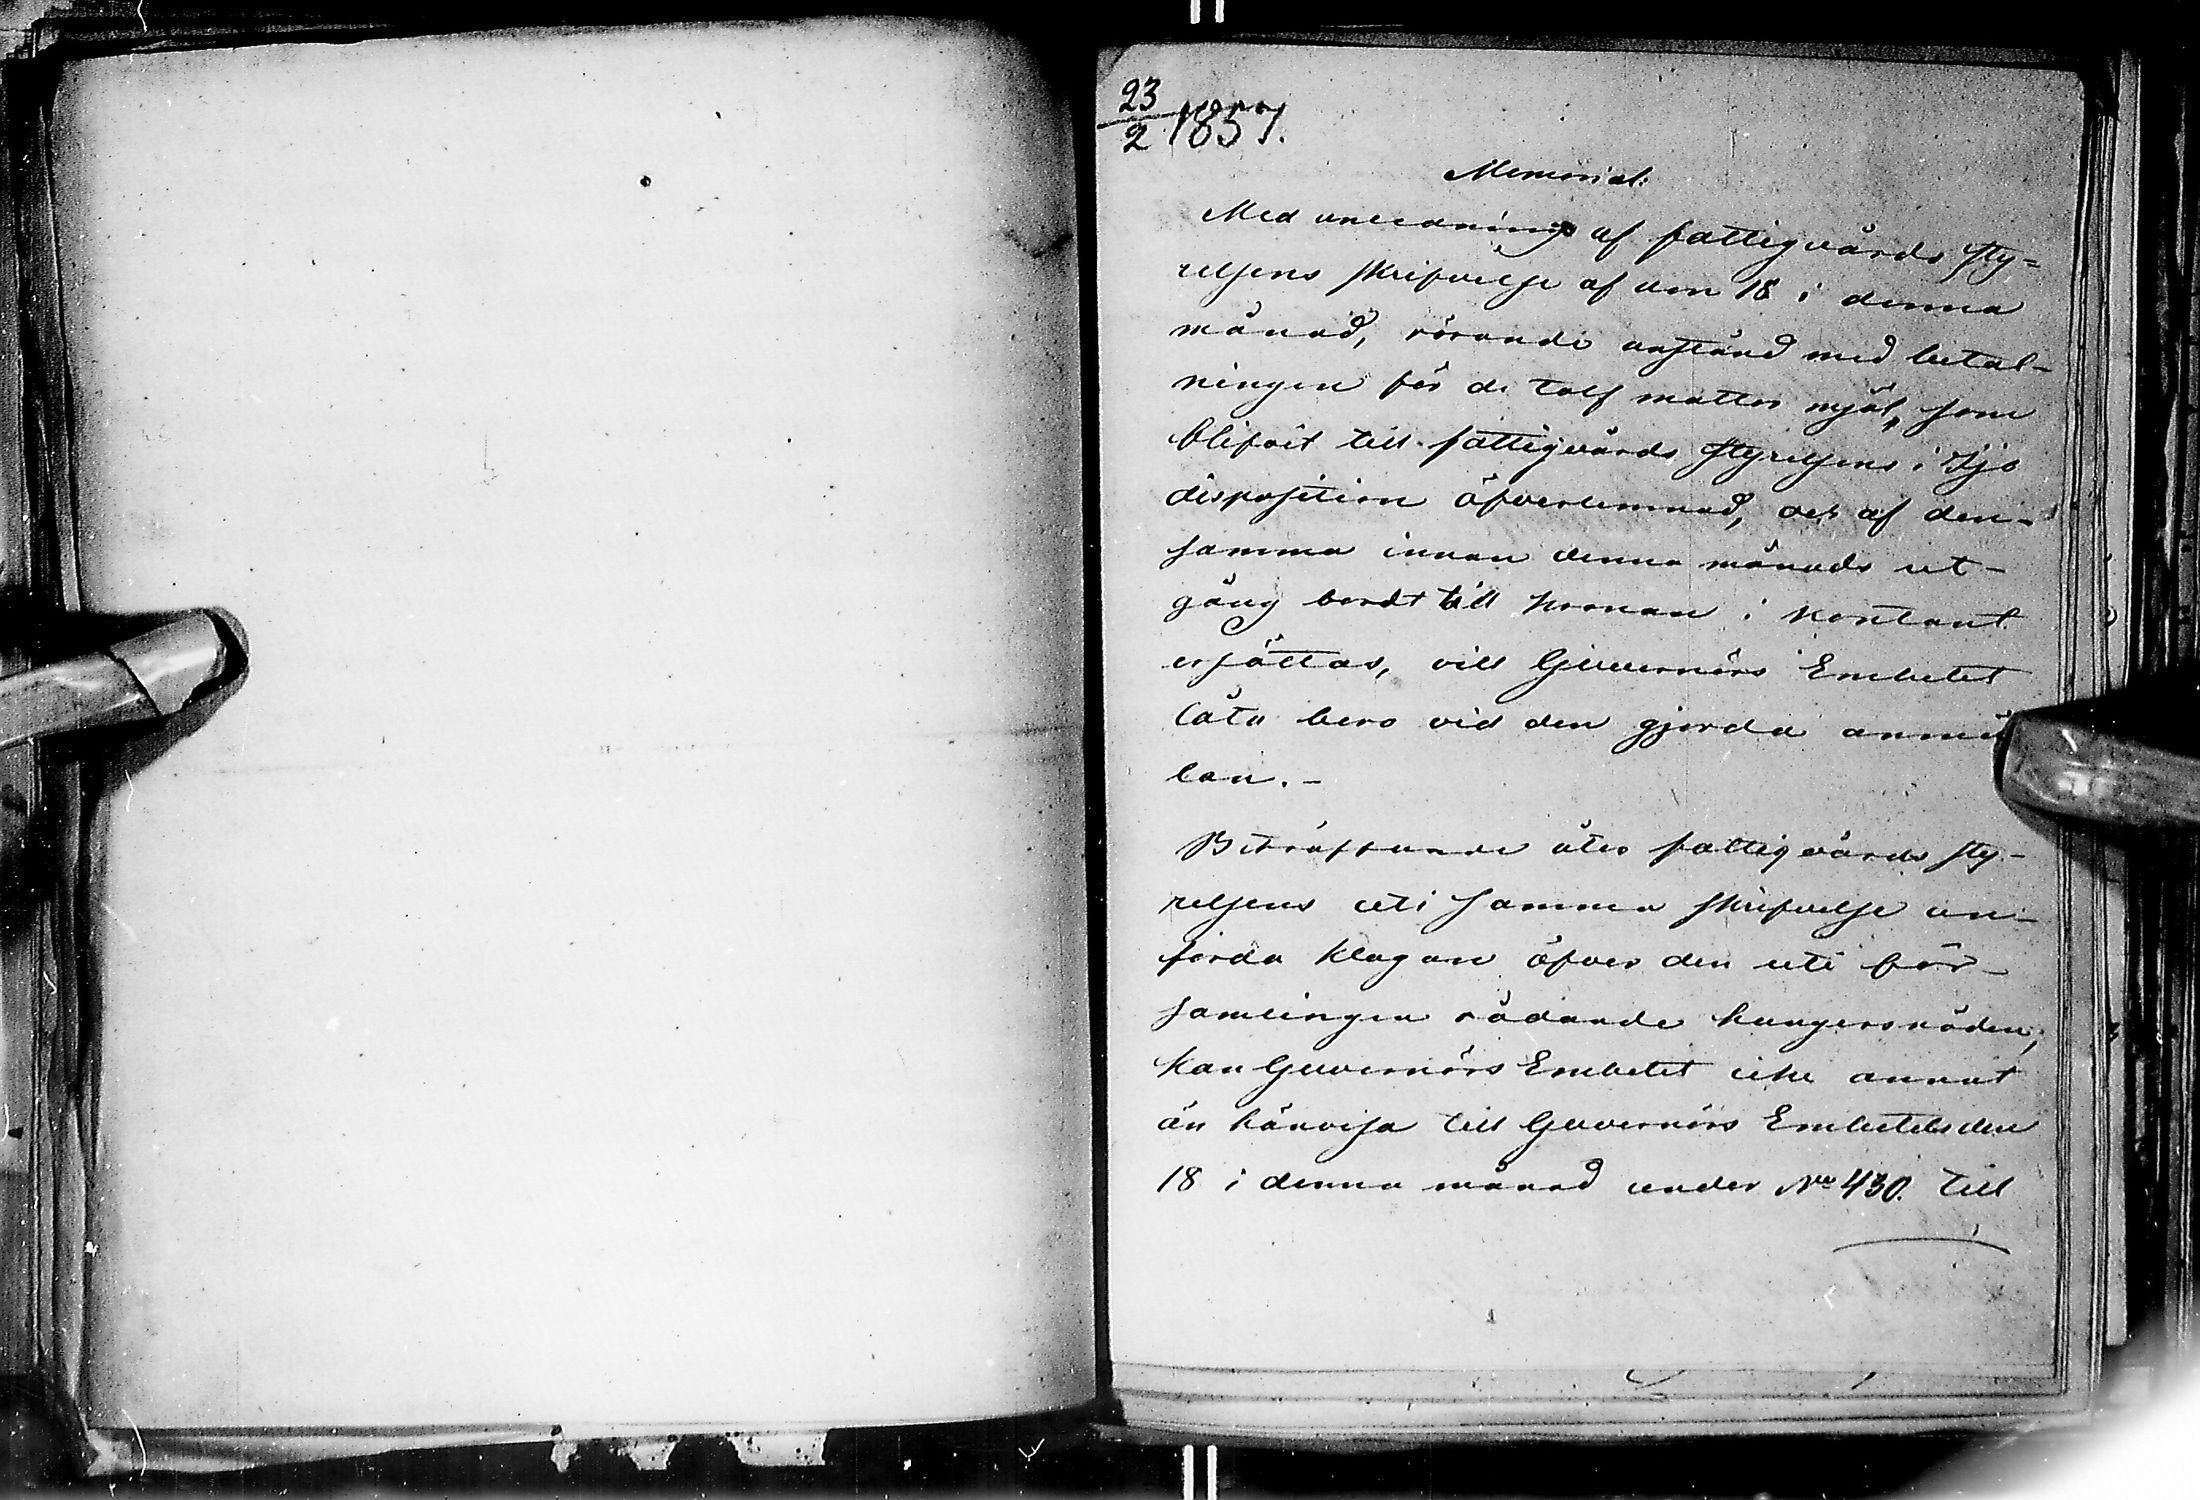 23/2 1857.
Memorial.
Med anledning af fattigvårds sty=
relsens skrifvelse af den 18 i denna
månad, rörande anstånd med betal-
ningen för de tolf mattor mjöl, som
blifvit till fattigvårds styrelsens i Ijo
disposition öfverlemnad, och af den-
samma innan denna månads ut-
gång bordt till kronan i kontant
ersättas, vill Guvernörs Embetet
låta bero vid den gjorda anmä
lan. -
Beträffande åter fattigvårds sty-
relsens uti samma skrifvelse an-
förda klagan öfver den uti för-
samlingen rådande hungersnöden,
kan Guvernörs Embetet icke annat
än hänvisa till Guvernörs Embetets den
18 i denna månad under No 430. till